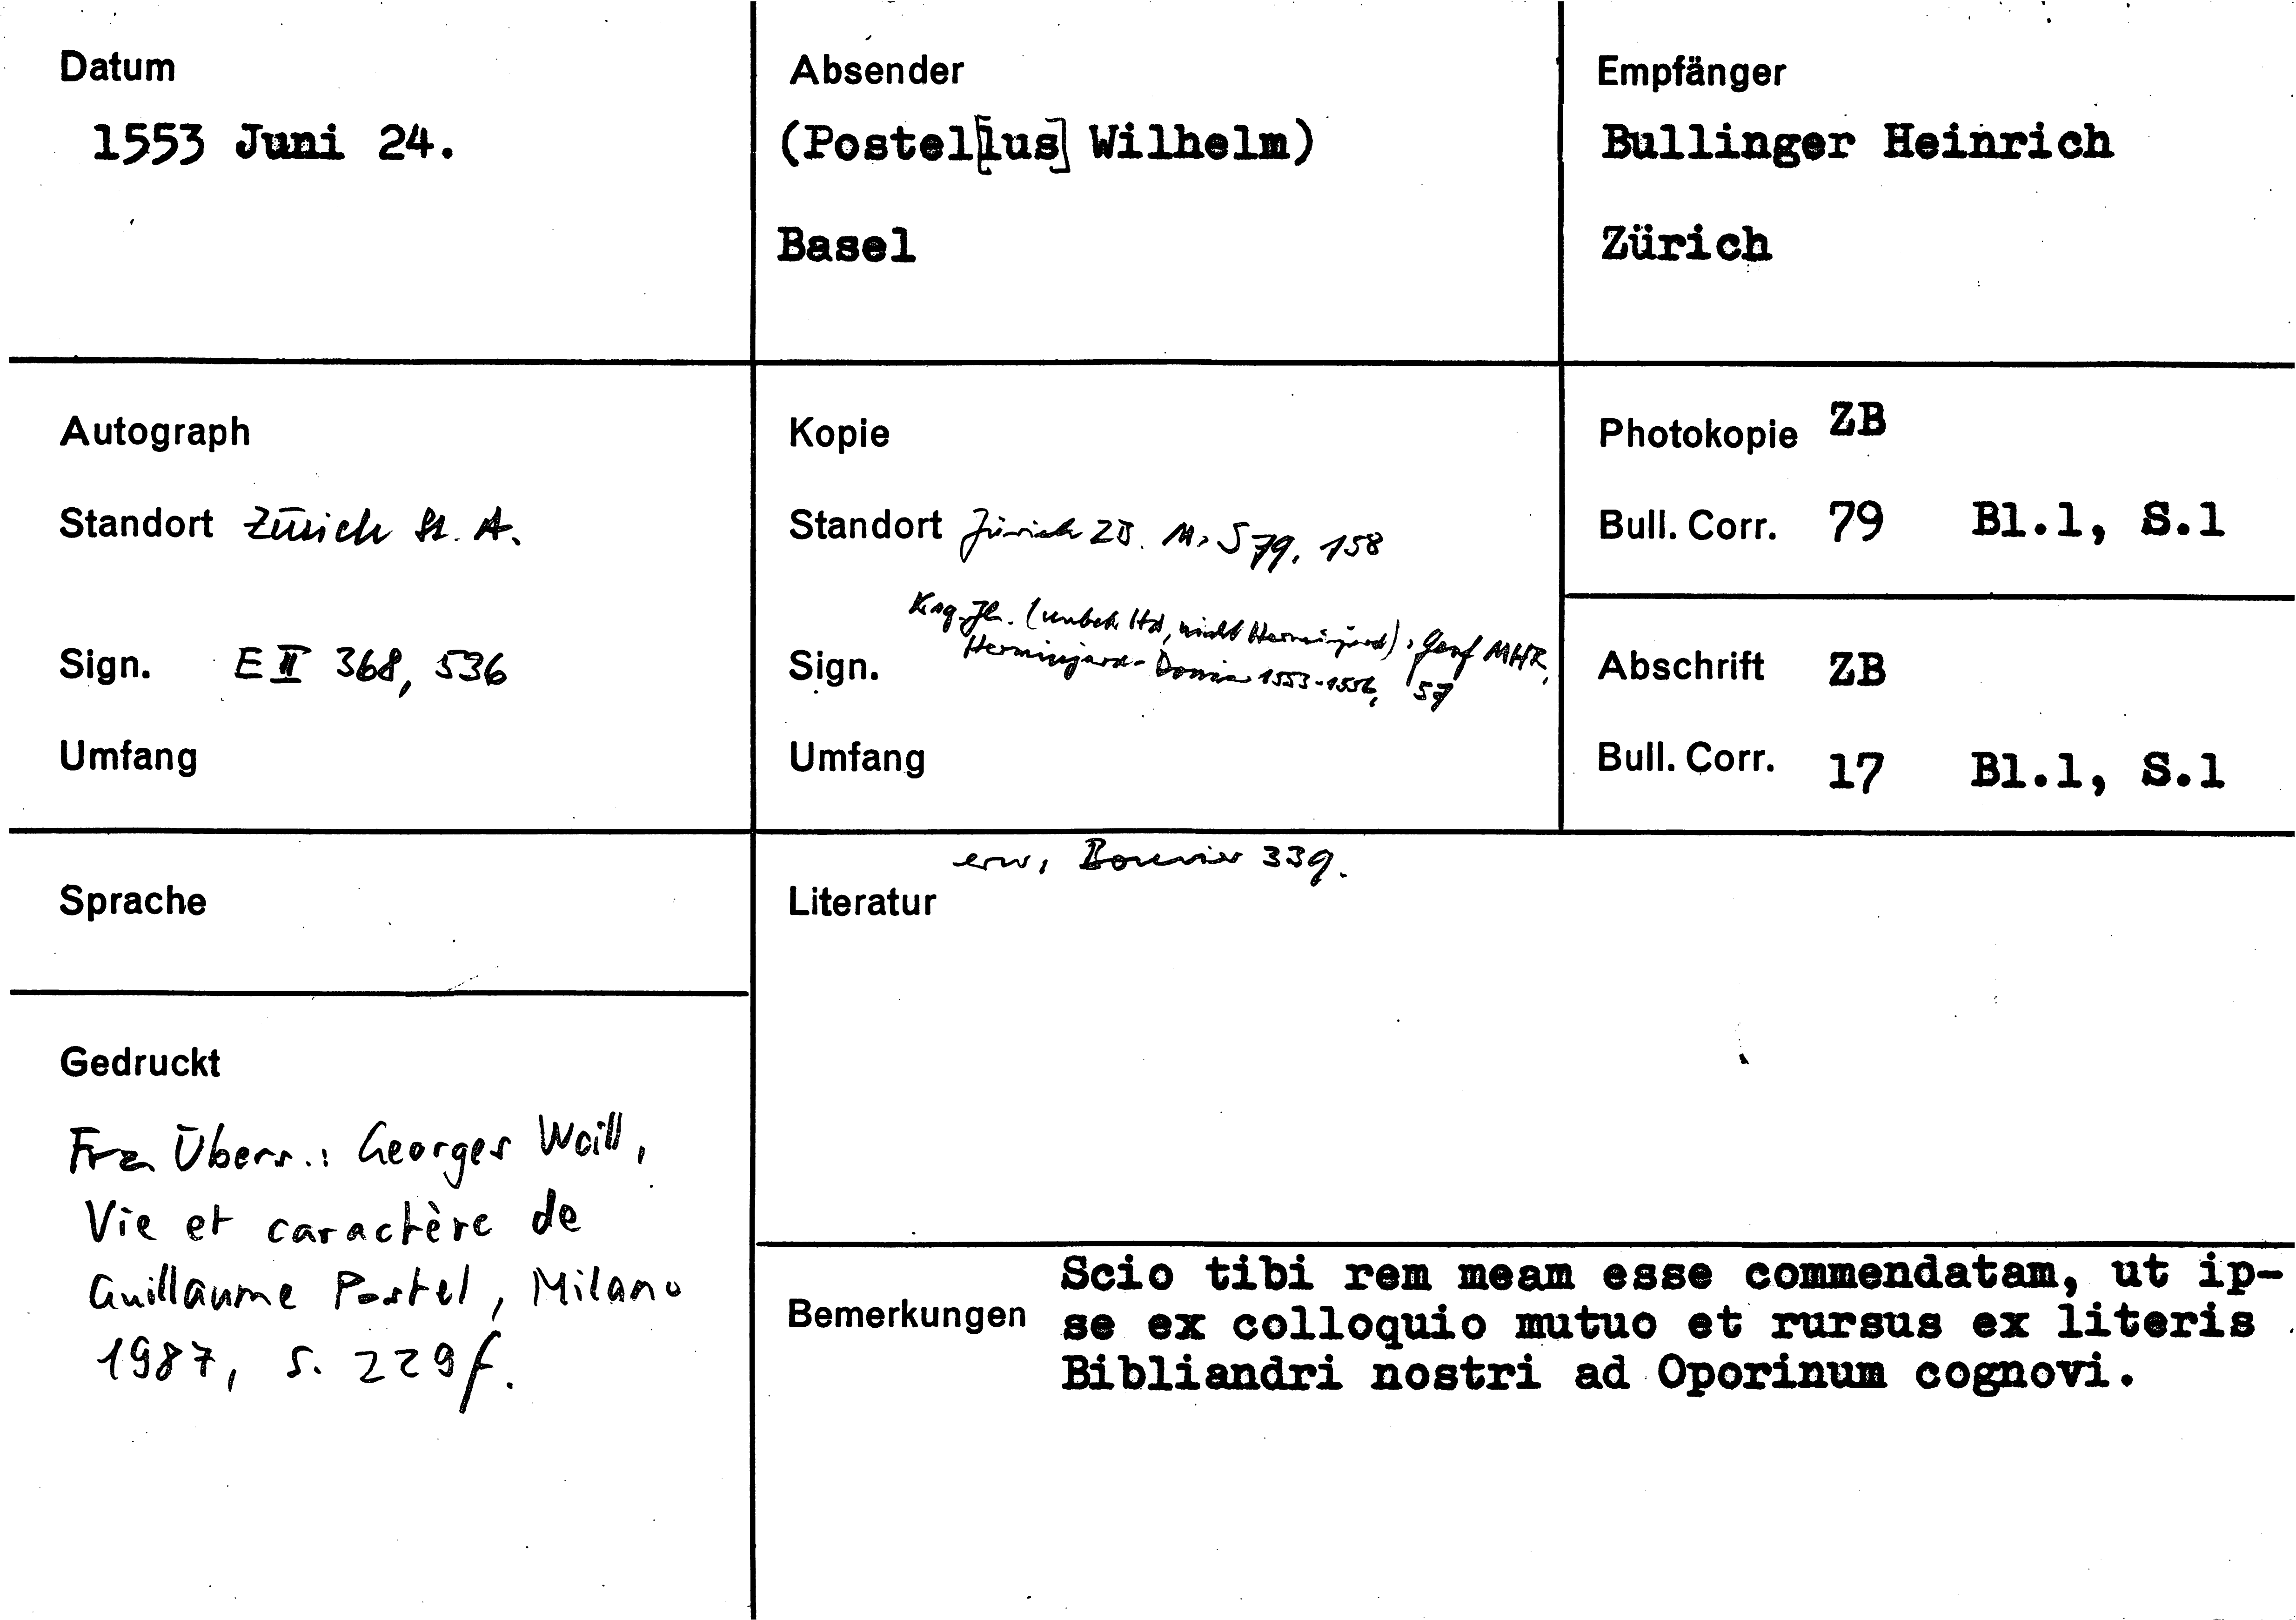 Datum
1553 Juni 24.
Absender
(Postel[lus] Wilhelm)
Basel
Empfänger
Bullinger Heinrich
Zürich
Autograph
Standort Zürich St. A.
Sign. E II 368, 536
Umfang
Kopie
Standort Zürich ZB. Ms S 79, 158
(unbek. Hd, nicht Herminjard), Genf MHR,
Sign. Herminjard- 1553-1556, 57
Umfang
Photokopie ZB
Bull. Corr. 79 Bl.1, S.1
Abschrift ZB
Bull. Corr. 17 Bl.1, S.1
Sprache
Gedruckt
Frz Übers.: Georges Weill,
Vie et caractère de
Guillaume Postel, Milano
1987, S. 229f.
erw, Bouvier 339.
Literatur
Bemerkungen
Scio tibi rem meam esse commendatam, ut ip-
se ex colloquio mutuo et rursus ex literis
Bibliandri nostri ad Oporinum cognovi.